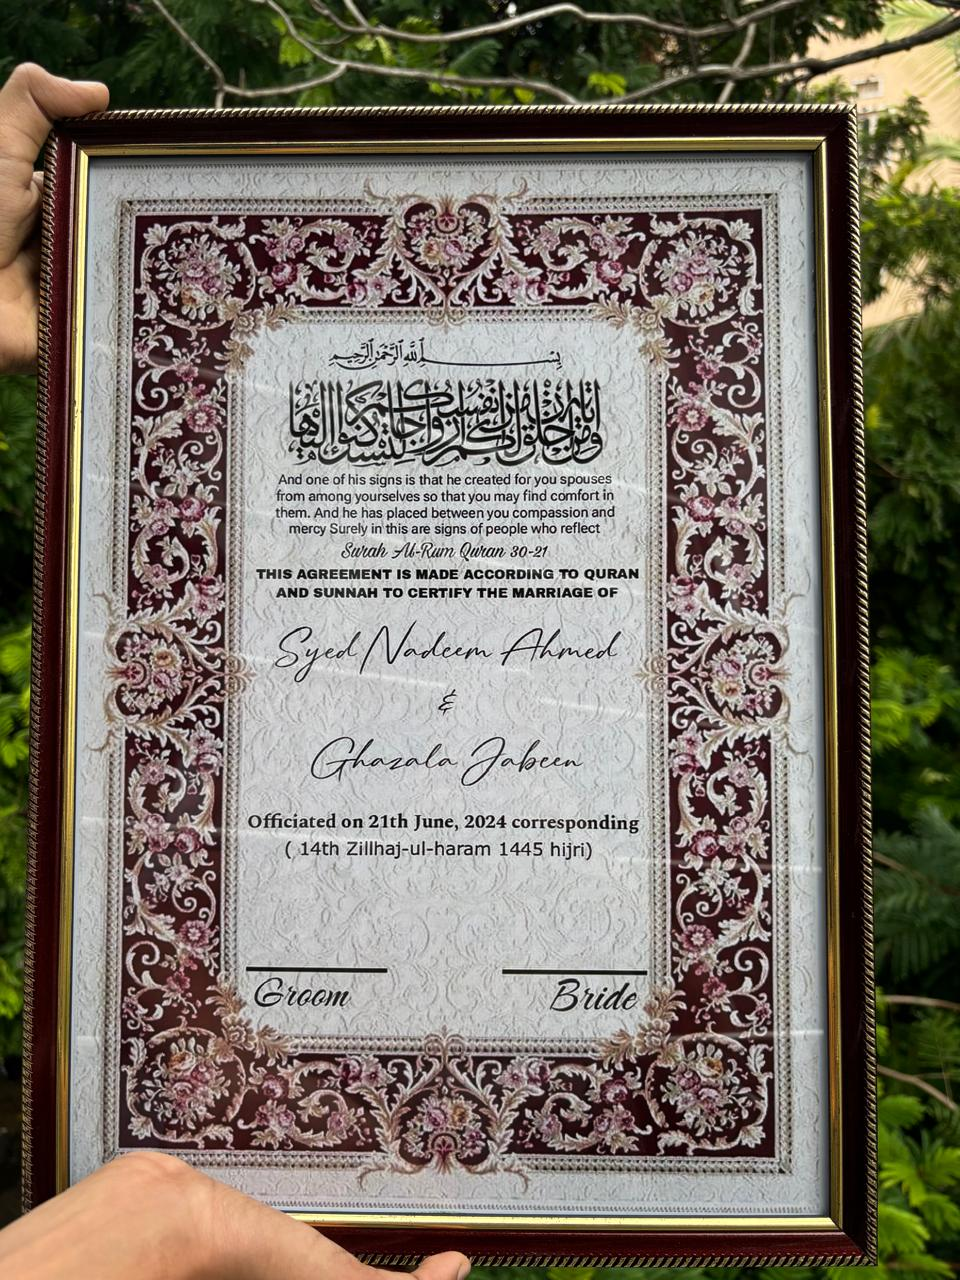 بسم الله الرحمن الرحيم
ومن آياته أن خلق لكم من أنفسكم أزواجا لتسكنوا إليها
And one of his signs is that he created for you spouses
from among yourselves so that you may find comfort in
them. And he has placed between you compassion and
mercy Surely in this are signs of people who reflect
Surah Al-Rum Quran 30-21
THIS AGREEMENT IS MADE ACCORDING TO QURAN
AND SUNNAH TO CERTIFY THE MARRIAGE OF
Syed Nadeem Ahmed
&
Ghazala Jabeen
Officiated on 21th June, 2024 corresponding
( 14th Zillhaj-ul-haram 1445 hijri)
Groom Bride